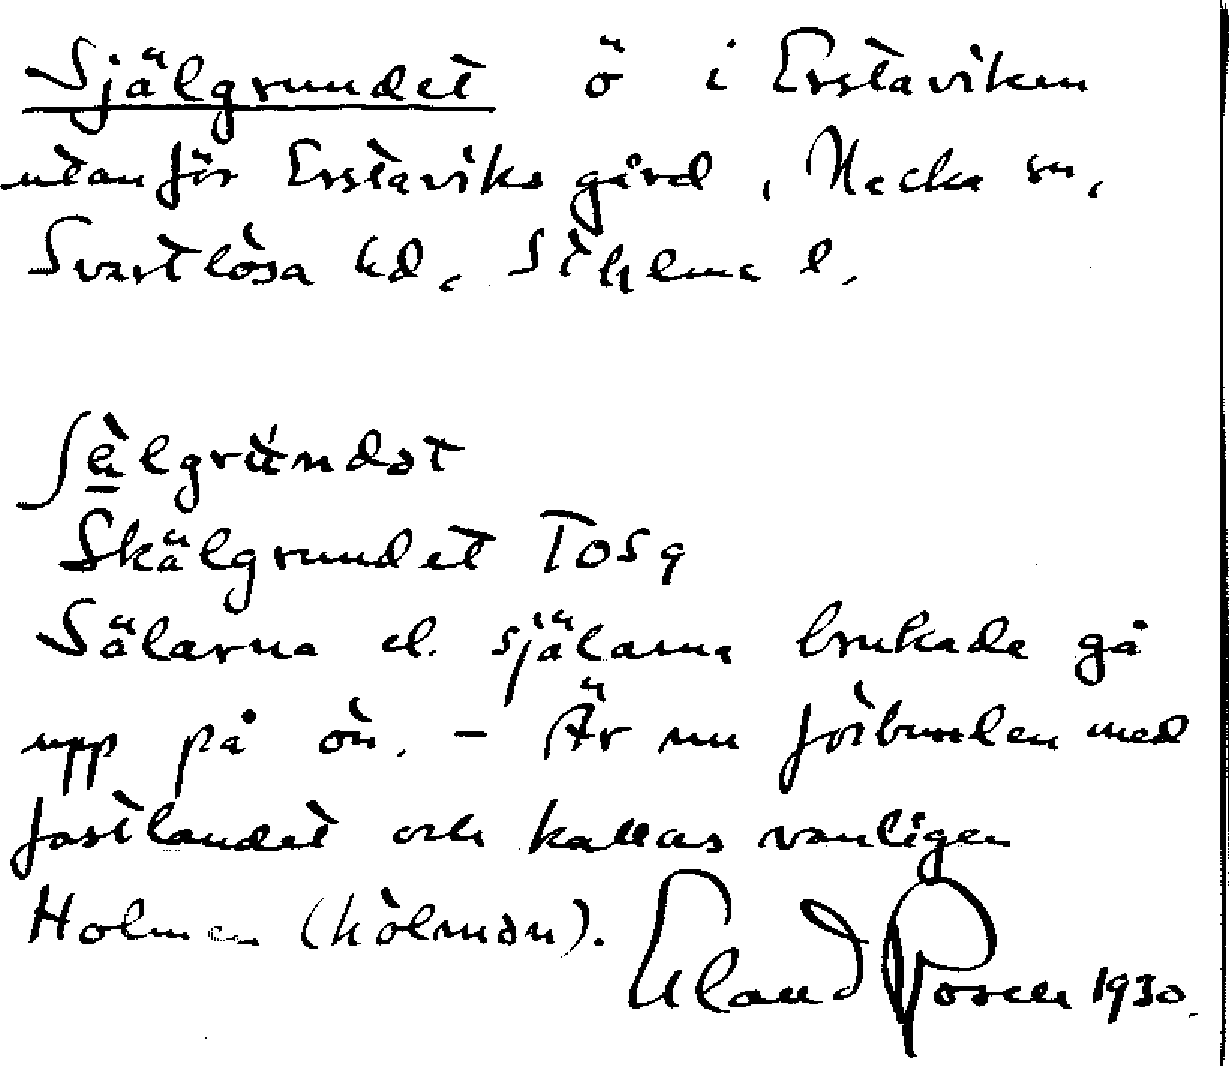 Själgrundet ö i Erstaviken
utanför Erstaviks gård, Nacka sn,
Svartlösa hd, Sthlms l.
ʃὲlgrúndət
Skälgrundet Tosq
Sälarna el. själarna brukade gå
upp på ön. – Är nu förbunden med
fastlandet och kallas vanligen
Holmen (hòlmən).
Erland Rosell 1930.